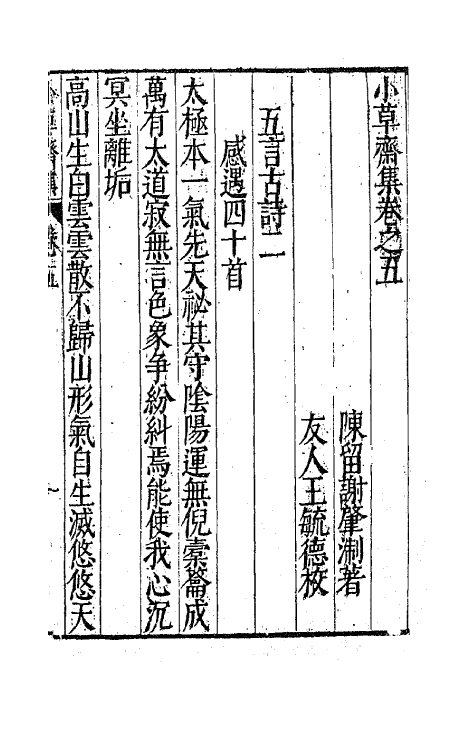 小草齋集卷之五
陳留謝肇淛著
友人王毓德校
五言古詩二
感遇四十首
太極本一氣先天祕其守陰陽運無倪橐籥成
萬有太道寂無言色象爭紛糾焉能使我心沉
冥坐離垢
高山生白雲雲散不歸山形氣自生滅悠悠天
小草齋集 卷五 一